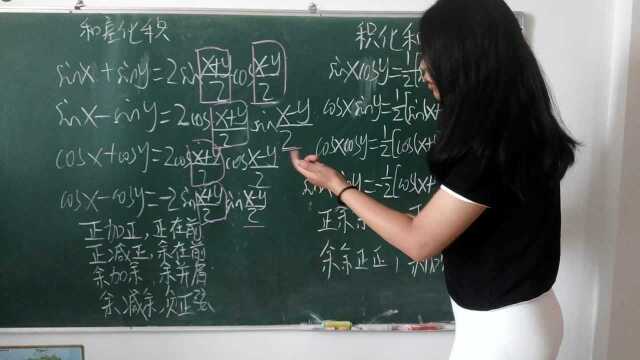 和差化积
sinx+siny=2sin x+y/2 cos x-y/2
sinx-siny=2cos x+y/2 sin x-y/2
cosx+cosy=2cos x+y/2 cos x-y/2
cosx-cosy=-2sin x+y/2 sin x-y/2
正加正,正在前
正减正,余在前
余加余,余并肩
余减余,负正弦
积化和
sinxcosy=1/2[
cosxsiny=1/2[sin(x
cosxcosy=1/2[cos(x+
sinxsiny=-1/2[cos(x+
正余
余余正正